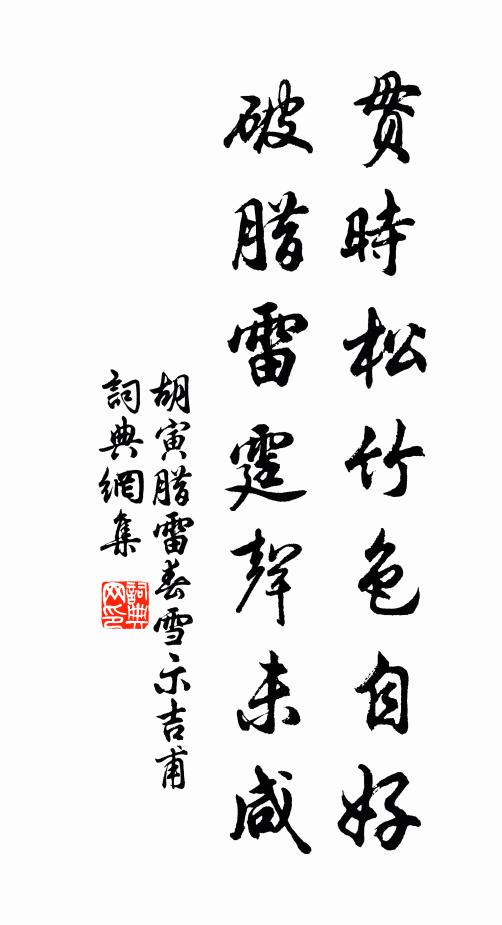 貫時松竹色自好
破腊雷霆聲未咸
胡寅腊雷春雪示吉甫
詞典網集
詞典网印